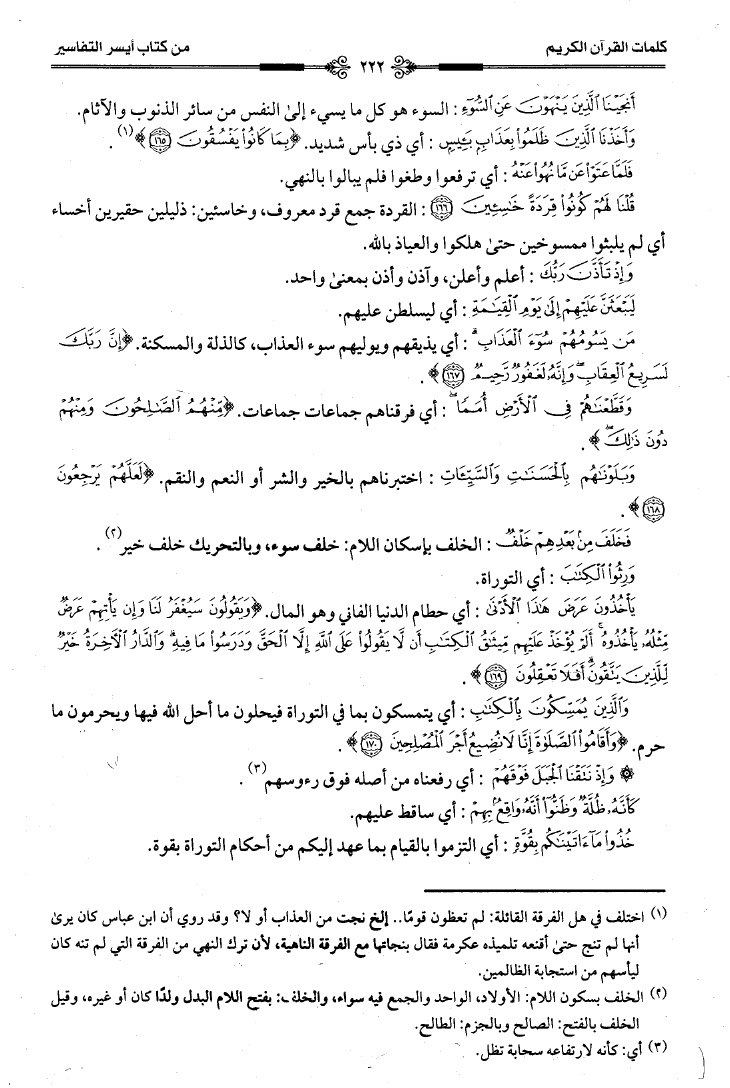 كلمات القرآن الكريم
٢٢٢
من كتاب أيسر التفاسير
أَنجَيْنَا الَّذِينَ يَنْهَوْنَ عَنِ السُّوٓءِ : السوء هو كل ما يسيء إلى النفس من سائر الذنوب والآثام.
وَأَخَذْنَا الَّذِينَ ظَلَمُوا بِعَذَابٍ بَئِيسٍ : أي ذي بأس شديد. ﴿بِمَا كَانُوا يَفْسُقُونَ ١٦٥﴾(١).
فَلَمَّا عَتَوْا عَن مَّا نُهُوا عَنْهُ : أي ترفعوا وطغوا فلم يبالوا بالنهي.
قُلْنَا لَهُمْ كُونُوا قِرَدَةً خَاسِئِينَ ١٦٦ : القردة جمع قرد معروف، وخاسئين: ذليلين حقيرين أخساء
أي لم يلبثوا ممسوخين حتى هلكوا والعياذ بالله.
وَإِذْ تَأَذَّنَ رَبُّكَ : أعلم وأعلن، وآذن وأذن بمعنى واحد.
لَيَبْعَثَنَّ عَلَيْهِمْ إِلَىٰ يَوْمِ الْقِيَامَةِ : أي ليسلطن عليهم.
مَن يَسُومُهُمْ سُوٓءَ الْعَذَابِ : أي يذيقهم ويوليهم سوء العذاب، كالذلة والمسكنة. ﴿إِنَّ رَبَّكَ
لَسَرِيعُ الْعِقَابِ وَإِنَّهُ لَغَفُورٌ رَّحِيمٌ ١٦٧﴾.
وَقَطَّعْنَاهُمْ فِي الْأَرْضِ أُمَمًا : أي فرقناهم جماعات جماعات. ﴿مِّنْهُمُ الصَّالِحُونَ وَمِنْهُمْ
دُونَ ذَٰلِكَ﴾.
وَبَلَوْنَاهُم بِالْحَسَنَاتِ وَالسَّيِّئَاتِ : اختبرناهم بالخير والشر أو النعم والنقم. ﴿لَعَلَّهُمْ يَرْجِعُونَ
١٦٨﴾.
فَخَلَفَ مِن بَعْدِهِمْ خَلْفٌ : الخلف بإسكان اللام: خلف سوء، وبالتحريك خلف خير(٢).
وَرِثُوا الْكِتَابَ : أي التوراة.
يَأْخُذُونَ عَرَضَ هَٰذَا الْأَدْنَىٰ : أي حطام الدنيا الفاني وهو المال. ﴿وَيَقُولُونَ سَيُغْفَرُ لَنَا وَإِن يَأْتِهِمْ عَرَضٌ
مِّثْلُهُ يَأْخُذُوهُ أَلَمْ يُؤْخَذْ عَلَيْهِم مِّيثَاقُ الْكِتَابِ أَن لَّا يَقُولُوا عَلَى اللَّهِ إِلَّا الْحَقَّ وَدَرَسُوا مَا فِيهِ وَالدَّارُ الْآخِرَةُ خَيْرٌ
لِّلَّذِينَ يَتَّقُونَ أَفَلَا تَعْقِلُونَ ١٦٩﴾.
وَالَّذِينَ يُمَسِّكُونَ بِالْكِتَابِ : أي يتمسكون بما في التوراة فيحلون ما أحل الله فيها ويحرمون ما
حرم. ﴿وَأَقَامُوا الصَّلَاةَ إِنَّا لَا نُضِيعُ أَجْرَ الْمُصْلِحِينَ ١٧٠﴾.
۞ وَإِذ نَتَقْنَا الْجَبَلَ فَوْقَهُمْ : أي رفعناه من أصله فوق رءوسهم(٣).
كَأَنَّهُ ظُلَّةٌ وَظَنُّوا أَنَّهُ وَاقِعٌ بِهِمْ : أي ساقط عليهم.
خُذُوا مَا ءَاتَيْنَاكُم بِقُوَّةٍ : أي التزموا بالقيام بما عهد إليكم من أحكام التوراة بقوة.
(١) اختلف في هل الفرقة القائلة: لم تعظون قومًا.. إلخ نجت من العذاب أو لا؟ وقد روي أن ابن عباس كان يرى
أنها لم تنج حتى أقنعه تلميذه عكرمة فقال بنجاتها مع الفرقة الناهية، لأن ترك النهي من الفرقة التي لم تنه كان
ليأسهم من استجابة الظالمين.
(٢) الخلف بسكون اللام: الأولاد، الواحد والجمع فيه سواء، والخلف: بفتح اللام البدل ولدًا كان أو غيره، وقيل
الخلف بالفتح: الصالح وبالجزم: الطالح.
(٣) أي: كأنه لارتفاعه سحابة تظل.